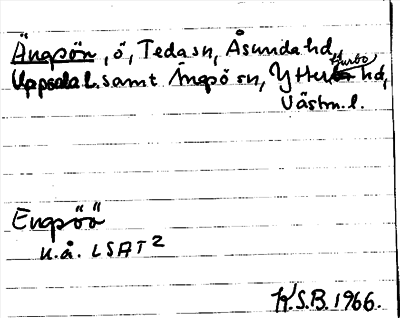 Ängsön, ö, Teda sn, Åsunda hd,
Uppsala l. samt Ängsö sn, Yttertjurbo hd,
Västm. l.
Engsöö
u.å. LSA T 2
K.S.B. 1966.